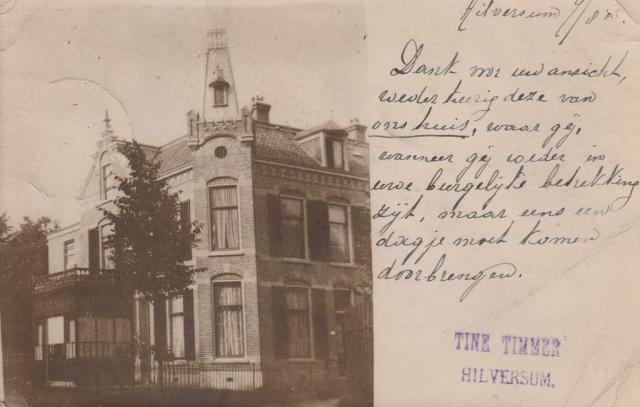 Hilversum
Dank voor uw ansicht,
wederkeerig deze van
ons huis, waar gij,
wanneer gij weder in
uwe burgelijke betrekking
zijt, maar eens uw
dagje moet komen
doorbrengen.
TINE TIMMER
HILVERSUM.